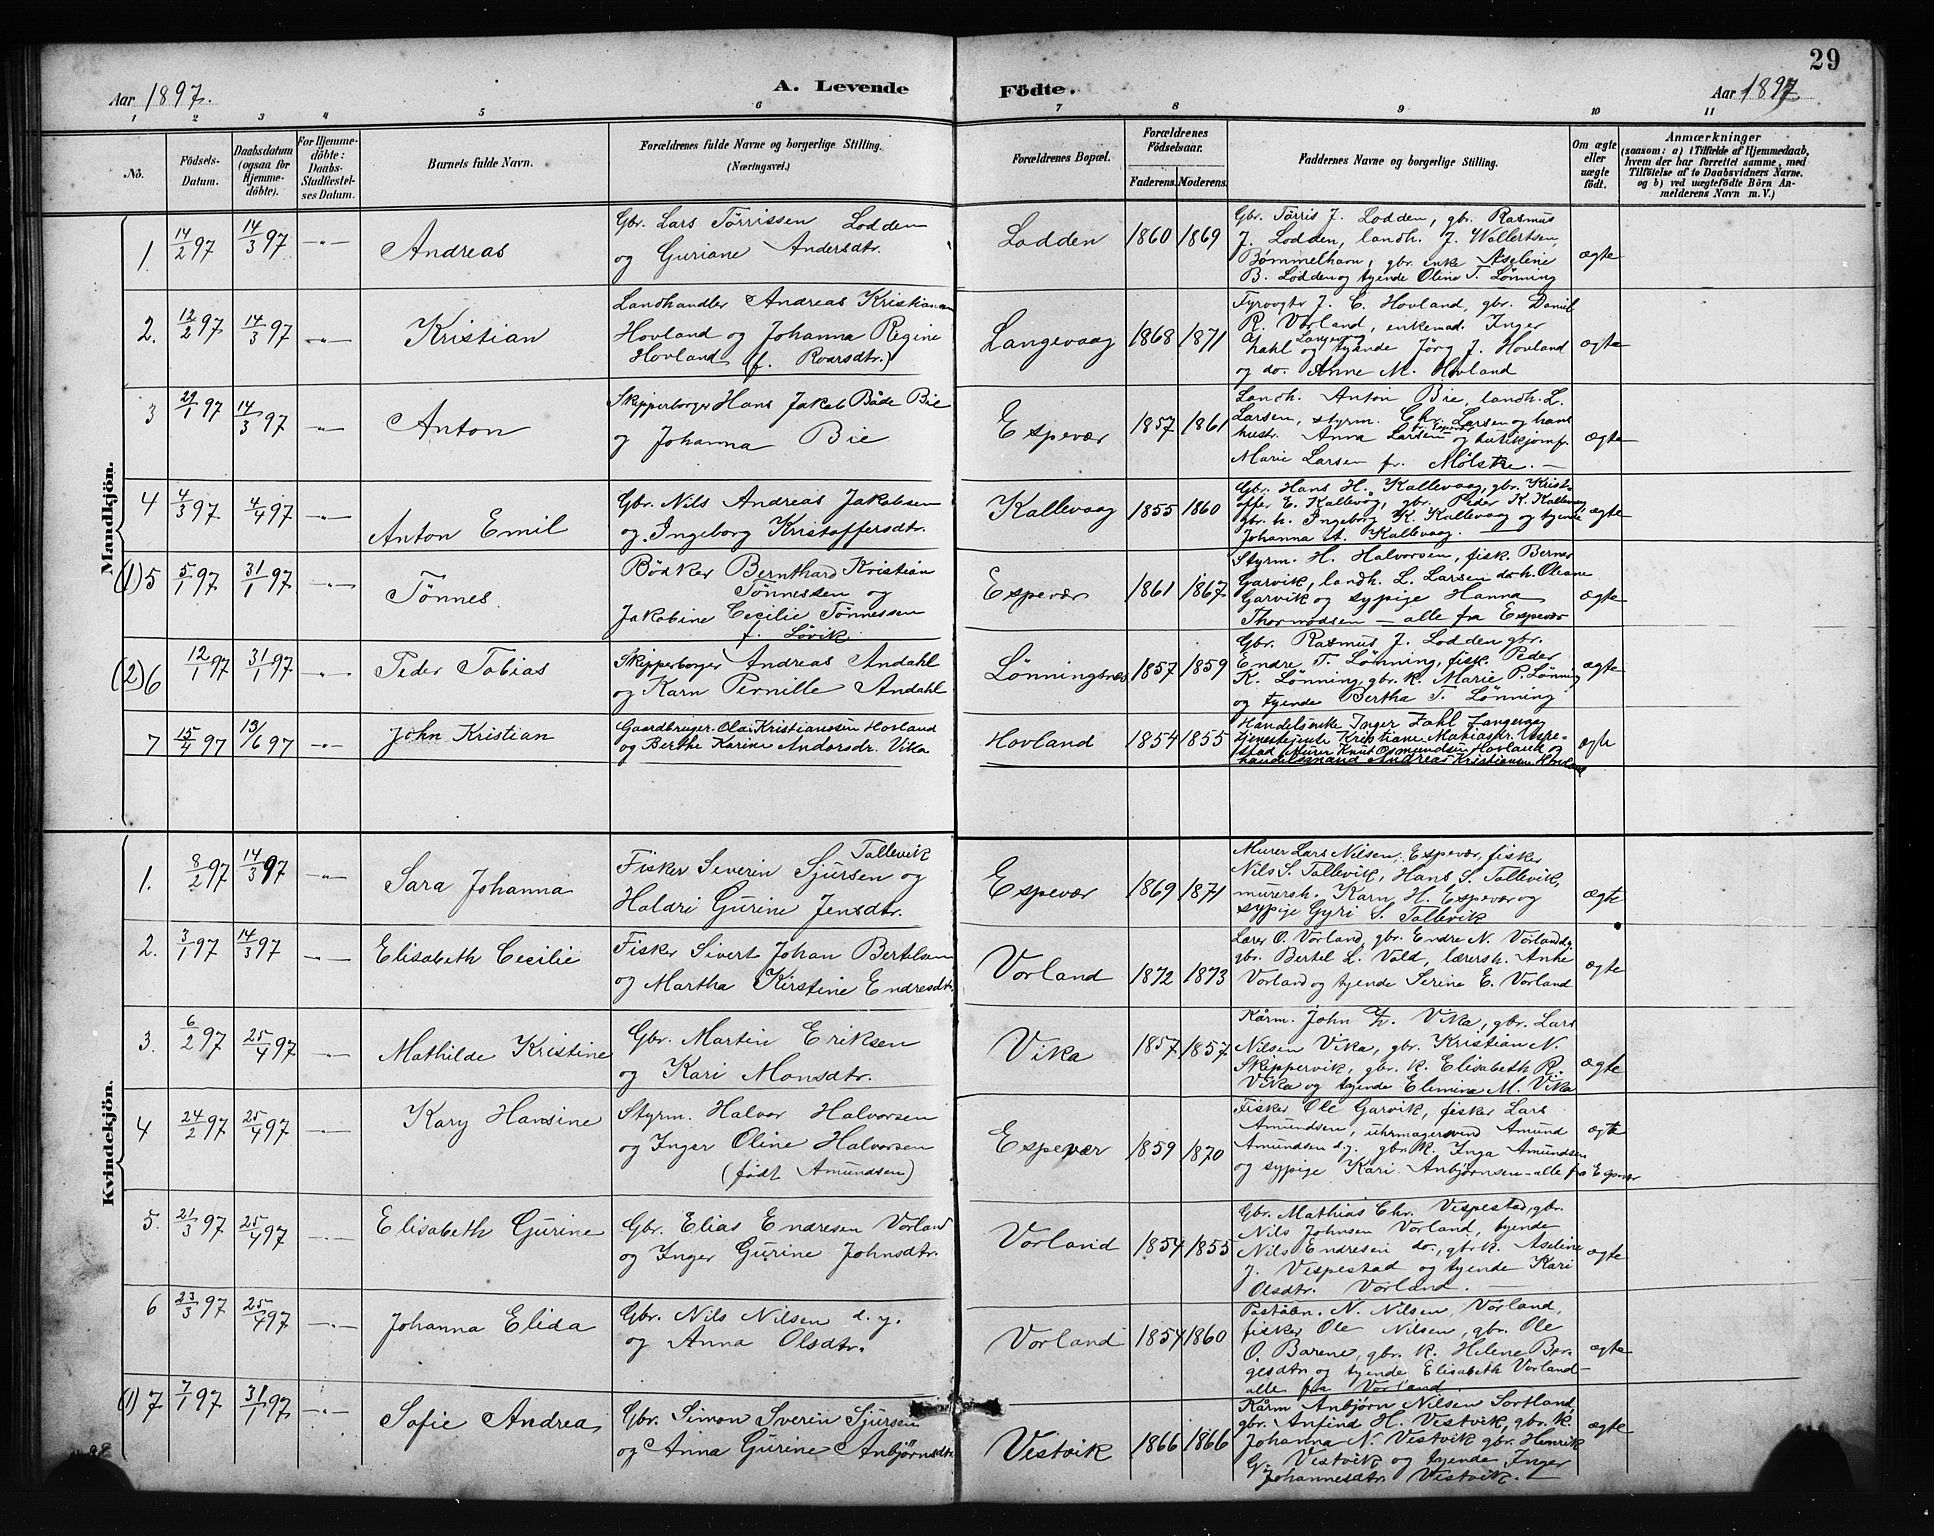 29
Aar 1897.
A. Levende
Födte.
Aar 1897
1 2 3 4 5 6 7 8 9 10 11
No.
Födsels-
Datum.
Daabsdatum
(ogsaa for
Hjemme-
döbte).
For Hjemme-
döbte:
Daabs-
Stadfæstel-
ses Datum.
Barnets fulde Navn.
Forældrenes fulde Navne og borgerlige Stilling.
(Næringsvei.)
Forældrenes Bopæl.
Forældrenes
Födselsaar.
Faderens.
Moderens.
Faddernes Navne og borgerlige Stilling.
Om ægte
eller
uægte
födt.
Anmærkninger
(saasom: a) i Tilfælde af Hjemmedaab,
hvem der har forrettet samme, med
Tilföielse af to Daabsvidners Navne,
og b) ved uægtefödte Börn An-
melderens Navn m. V.)
Mandkjön.
1. 14/2 97 14/3 97 -"- Andreas
Gbr. Lars Tørrissen Lodden
og Guriane Andersdtr.
Lodden 1860 1869
Gbr. Tørris J. Lodden, gbr. Rasmus
J. Lodden, landh. J. Wallertsen,
Bømmelhavn, gbr. enke Aseline
B. Lodden og tyende Oline T. Lønning
ægte
2. 12/2 97 14/3 97 -"- Kristian
Landhandler Andreas Kristiansen
Hovland og Johanna Regine
Hovland (f. Roarsdtr.)
Langevaag 1868 1871
Fyrvogter J. C. Hovland, gbr. Daniel
R. Vorland, enkemad. Inger
Zahl Langevaag og tyende Jørg J. Hovland
og do. Anne M. Hovland
ægte
3 29/1 97 14/3 97 -"- Anton
Skipperborger Hans Jakob Både Bie
og Johanna Bie
Espevær 1857 1861
Landh. Anton Bie, landh. L.
Larsen, styrm. Chr. Larsen og hans
hustr. Anna Larsen fr. Espevær og butikjomfr.
Marie Larsen fr. Mølstre. —
ægte
4 4/3 97 4/4 97 -"- Anton Emil
Gbr. Nils Andreas Jakobsen
og Ingeborg Kristoffersdtr.
Kallevaag 1855 1860
Gbr. Hans H. Kallevaag, gbr. Krist-
offer E. Kallevåg, gbr. Peder K. Kallevaag
gbr. h. Ingeborg K. Kallevaag og tyende
Johanna A. Kallevaag.
ægte
(1) 5 5/1 97 31/1 97 -"- Tønnes
Bødker Bernthard Kristian
Tønnessen og
Jakobine Cecilie Tønnessen
f. Løvik
Espevær 1861 1867
Styrm. H. Halvorsen, fisk. Berner
Garvik, landh. L. Larsen do h. Oleane
Garvik og sypige Hanna
Thormodsen — alle fra Espevær
ægte
(2) 6 12/1 97 31/1 97 -"- Peder Tobias
Skipperborger Andreas Andahl
og Karn Pernille Andahl
Lønningsnes 1857 1859
Gbr. Rasmus J. Lodden gbr.
Endre T. Lønning, fisk. Peder
K. Lønning, gbr. k. Marie P. Lønning
og tyende Bertha T. Lønning
ægte
7 15/4 97 13/6 97 -"- John Kristian
Gaardbruger Ola Kristiansen Hovland
og Berthe Karine Andorsdr. Vika
Hovland 1854 1855
Handelsenke Inger Zahl Langevaag
tjenestejente Kristiane Mathiasdr. Vespe-
stad Murer Knut Osmundsen Hovland og
handelsmand Andreas Kristiansen Hovland
ægte
Kvindekjön.
1. 8/2 97 14/3 97 -"- Sara Johanna
Tallevik
Fisker Severin Sjursen og
Haldri Gurine Jensdtr.
Espevær 1869 1871
Murer Lars Nilsen, Espevær, fisker
Nils S. Tallevik, Hans S. Tallevik,
murersh. Karn H. Espevær og
sypige Gyri S. Tallevik
ægte
2. 3/1 97 14/3 97 -"- Elisabeth Cecilie
Fisker Sivert Johan Bertelsen
og Martha Kirstine Endresdtr.
Vorland 1872 1873
Lærer O. Vorland, gbr. Endre N. Vorland
gbr. Bertel L. Vold, lærersh. Anne
Vorland og tyende Serine E. Vorland
ægte
3. 6/2 97 25/4 97 -"- Mathilde Kristine
Gbr. Martin Eriksen
og Kari Monsdtr.
Vika 1857 1857
Kårm. John Th. Vika, gbr. Lars
Nilsen Vika, gbr. Kristian N.
Skippervik, gbr. k. Elisabeth R.
Vika og tyende Elemine M. Vika
ægte
4 24/2 97 25/4 97 -"- Kary Hansine
Styrm. Halvor Halvorsen
og Inger Oline Halvorsen
(født Amundsen)
Espevær 1859 1870
Fisker Ole Garvik, fisker Lars
Amundsen, uhrmagersvend Amund
Amundsen d.y. gbr. k. Inga Amundsen
og sypige Kari Anbjørnsen - alle fra Espevær
ægte
5. 21/3 97 25/4 97 -"- Elisabeth Gurine
Gbr. Elias Endresen Vorland
og Inger Gurine Johnsdtr.
Vorland 1854 1855
Gbr. Mathias Chr. Vespestad, gbr.
Nils Johnsen Vorland, tyende
Nils Endresen do., gbr. k. Aseline
J. Vespestad og tyende Kari
Olsdtr. Vorland.
ægte
6 23/3 97 25/4 97 -"- Johanna Elida
Gbr. Nils Nilsen d.y.
og Anna Olsdtr.
Vorland 1854 1860
Poståbn. N. Nilsen, Vorland,
fisker Ole Nilsen, gbr. Ole
O. Barene, gbr. k. Helene Bør-
gesdtr. og tyende Elisabeth Vorland
alle fra Vorland.
ægte
(1) 7 7/1 97 31/1 97 Sofie Andrea
Gbr. Simon Sverin Sjursen
og Anna Gurine Anbjørnsdtr.
Vestvik 1866 1866
Kårm Anbjørn Nilsen Sortland,
gbr. Anfind H. Vestvik, gbr. k.
Johanna N. Vestvik gbr. Henrik
G. Vestvik og tyende Inger
Johannesdtr. Vestvik. —
ægte